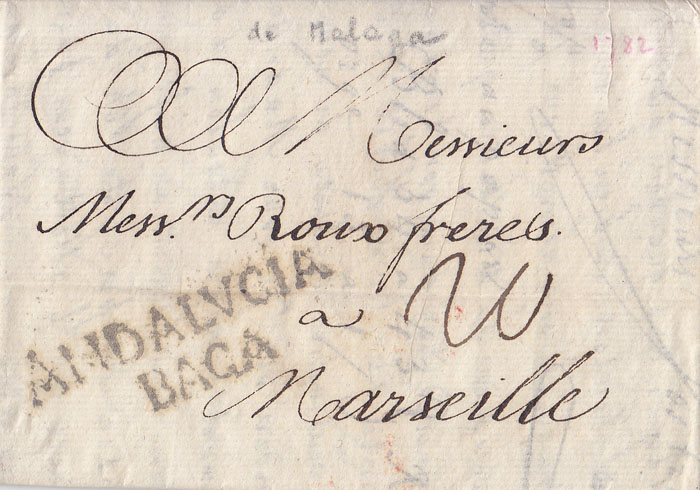 de Malaga
1782
Messieurs
Mess.rs Roux freres.
ANDALVCIA
BAGA
a
Marseille